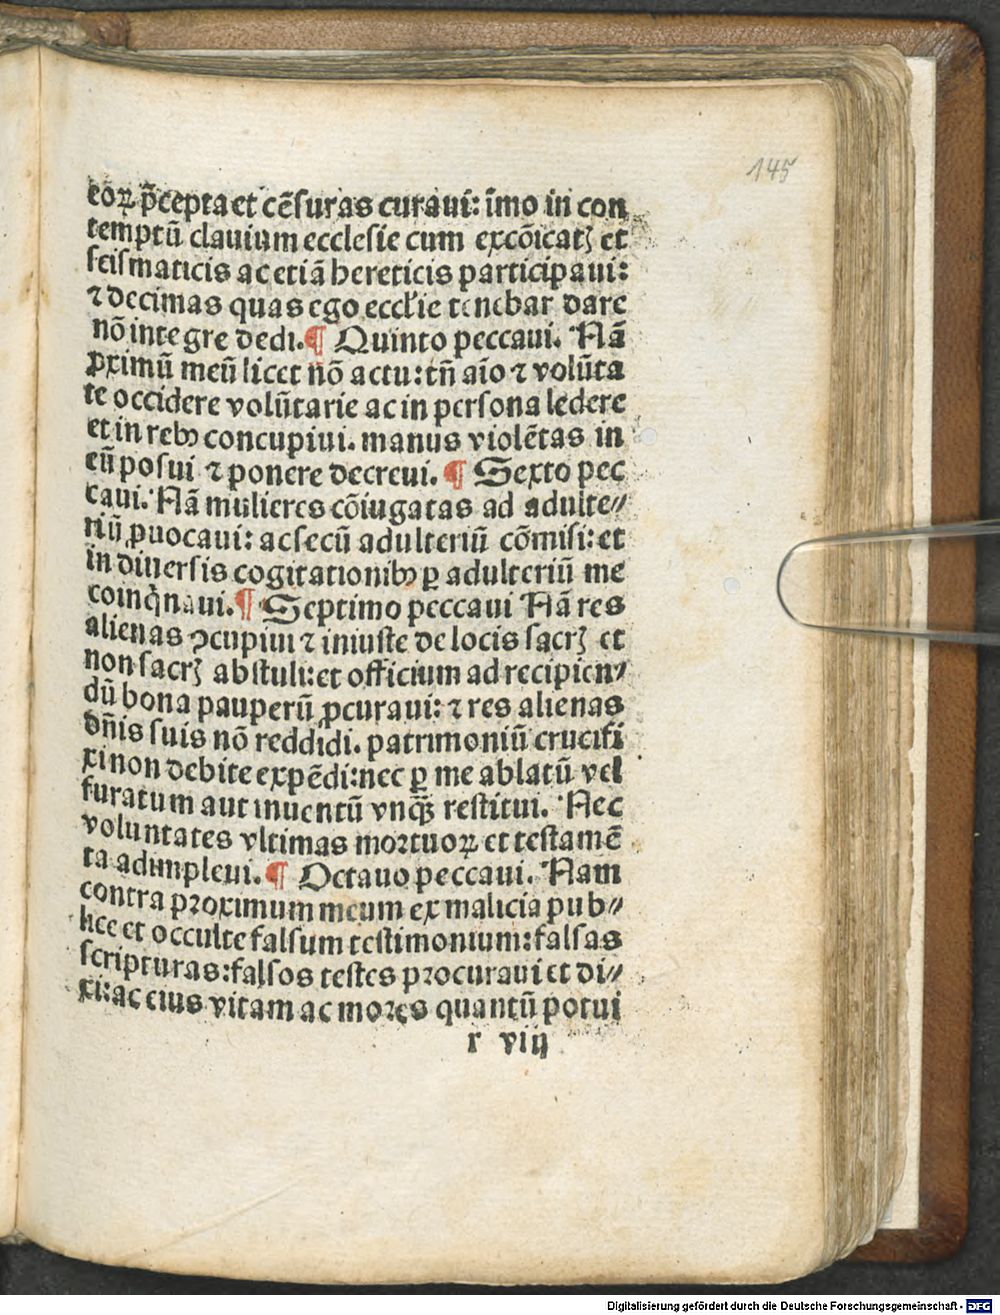 145
eoꝝ p̃cepta et cẽsuras curaui: ĩmo in con
temptũ clauium ecclesie cum excõicatꝫ et
scismaticis ac etiã hereticis participaui:
⁊ decimas quas ego eccl'ie tenebar dare
nõ integre dedi. ¶ Quinto peccaui. Nã
ꝓximũ meũ licet nõ actu: tñ aĩo ⁊ volũta
te occidere volũtarie ac in persona ledere
et in rebꝰ concupiui. manus violẽtas in
eũ posui ⁊ ponere decreui. ¶ Sexto pec
caui. Nã mulieres cõiugatas ad adulte⸗
riũ ꝓuocaui: ac secũ adulteriũ cõmisi: et
in diuersis cogitationibꝰ ꝑ adulteriũ me
coinq̃naui. ¶ Septimo peccaui Nã res
alienas ꝯcupiui ⁊ iniuste de locis sacrꝫ et
non sacrꝫ abstuli: et officium ad recipien⸗
dũ bona pauperũ ꝓcuraui: ⁊ res alienas
dñis suis nõ reddidi. patrimoniũ crucifi
xi non debite expẽdi: nec ꝑ me ablatũ vel
furatum aut inuentũ vnq̃ꝫ restitui. Nec
voluntates vltimas mortuoꝝ et testamẽ
ta adimpleui. ¶ Octauo peccaui. Nam
contra proximum meum ex malicia pub⸗
lice et occulte falsum testimonium: falsas
scripturas: falsos testes procuraui et di⸗
xi: ac eius vitam ac mores quantũ potui
r viij
Digitalisierung gefördert durch die Deutsche Forschungsgemeinschaft - DFG